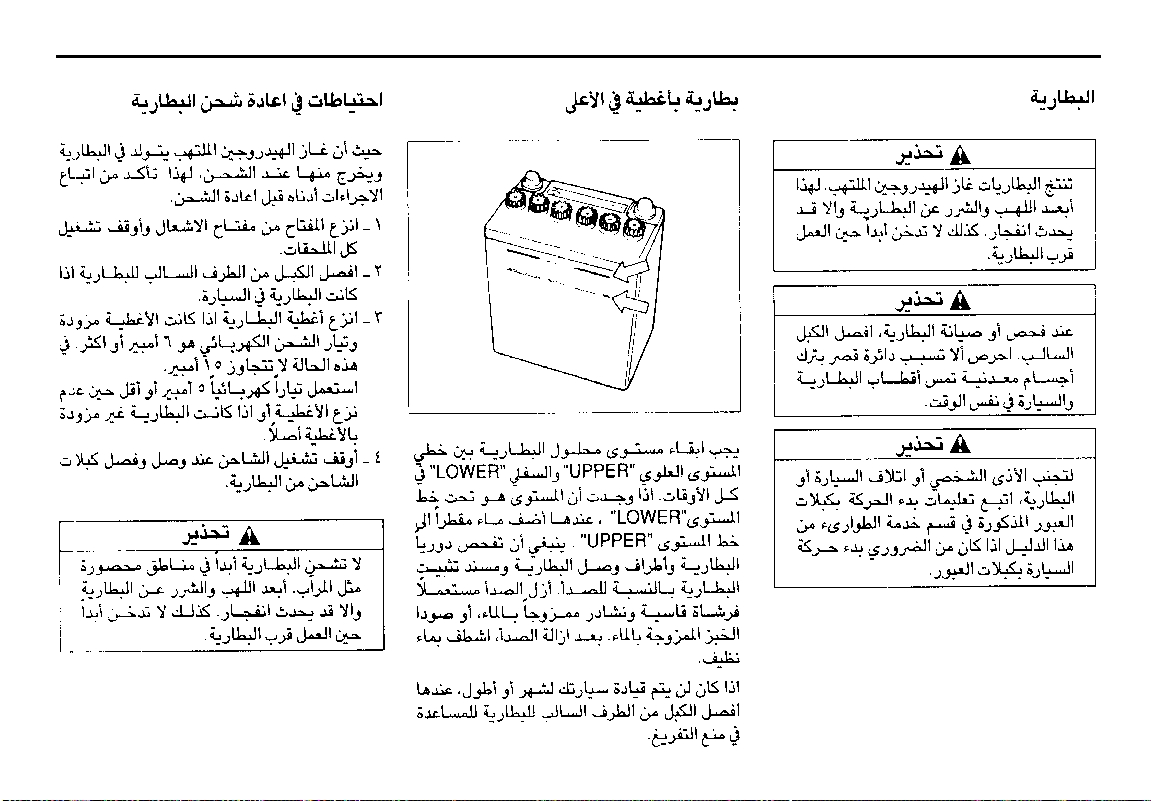 البطارية
تحذير
تنتج البطاريات غاز الهيدروجين الملتهب. لهذا
أبعد اللهب والشرر عن البطارية والا قد
يحدث انفجار. كذلك لا تدخن أبداً حين العمل
قرب البطارية.
تحذير
عند فحص أو صيانة البطارية، افصل الكبل
السالب. احرص ألا تسبب دائرة قصر بترك
أجسام معدنية تمس أقطاب البطارية
والسيارة في نفس الوقت.
تحذير
لتجنب الأذى الشخصي أو اتلاف السيارة أو
البطارية، اتبع تعليمات بدء الحركة بكبلات
العبور المذكورة في قسم خدمة الطوارىء من
هذا الدليل اذا كان من الضروري بدء حركة
السيارة بكبلات العبور.
بطارية بأغطية في الأعلى
يجب ابقاء مستوى محلول البطارية بين خطي
المستوى العلوي "UPPER" والسفلي "LOWER" في
كل الأوقات. اذا وجدت أن المستوى هو تحت خط
المستوى"LOWER" ، عندها أضف ماء مقطراً الى
خط المستوى "UPPER" . ينبغي أن تفحص دورياً
البطارية وأطراف وصل البطارية ومسند تثبيت
البطارية بالنسبة للصدأ. أزل الصدأ مستعملاً
فرشاة قاسية ونشادر ممزوجاً بالماء، أو صودا
الخبز الممزوجة بالماء. بعد ازالة الصدأ، اشطف بماء
نظيف.
اذا كان لن يتم قيادة سيارتك لشهر أو أطول، عندها
افصل الكبل من الطرف السالب للبطارية للمساعدة
في منع التفريغ.
احتياطات في اعادة شحن البطارية
حيث أن غاز الهيدروجين الملتهب يتولد في البطارية
ويخرج منها عند الشحن، لهذا تأكد من اتباع
الاجراءات أدناه قبل اعادة الشحن.
١ – انزع المفتاح من مفتاح الاشعال وأوقف تشغيل
كل الملحقات.
٢ – افصل الكبل من الطرف السالب للبطارية اذا
كانت البطارية في السيارة.
٣ – انزع أغطية البطارية اذا كانت الأغطية مزودة
وتيار الشحن الكهربائي هو ٦ أمبير أو اكثر. في
هذه الحالة لا تتجاوز ١٥ أمبير.
استعمل تياراً كهربائياً ٥ أمبير أو أقل حين عدم
نزع الأغطية أو اذا كانت البطارية غير مزودة
بالأغطية أصلاً.
٤ – أوقف تشغيل الشاحن عند وصل وفصل كبلات
الشاحن من البطارية.
تحذير
لا تشحن البطارية أبداً في مناطق محصورة
مثل المرآب. أبعد اللهب والشرر عن البطارية
والا قد يحدث انفجار. كذلك لا تدخن أبداً
حين العمل قرب البطارية.